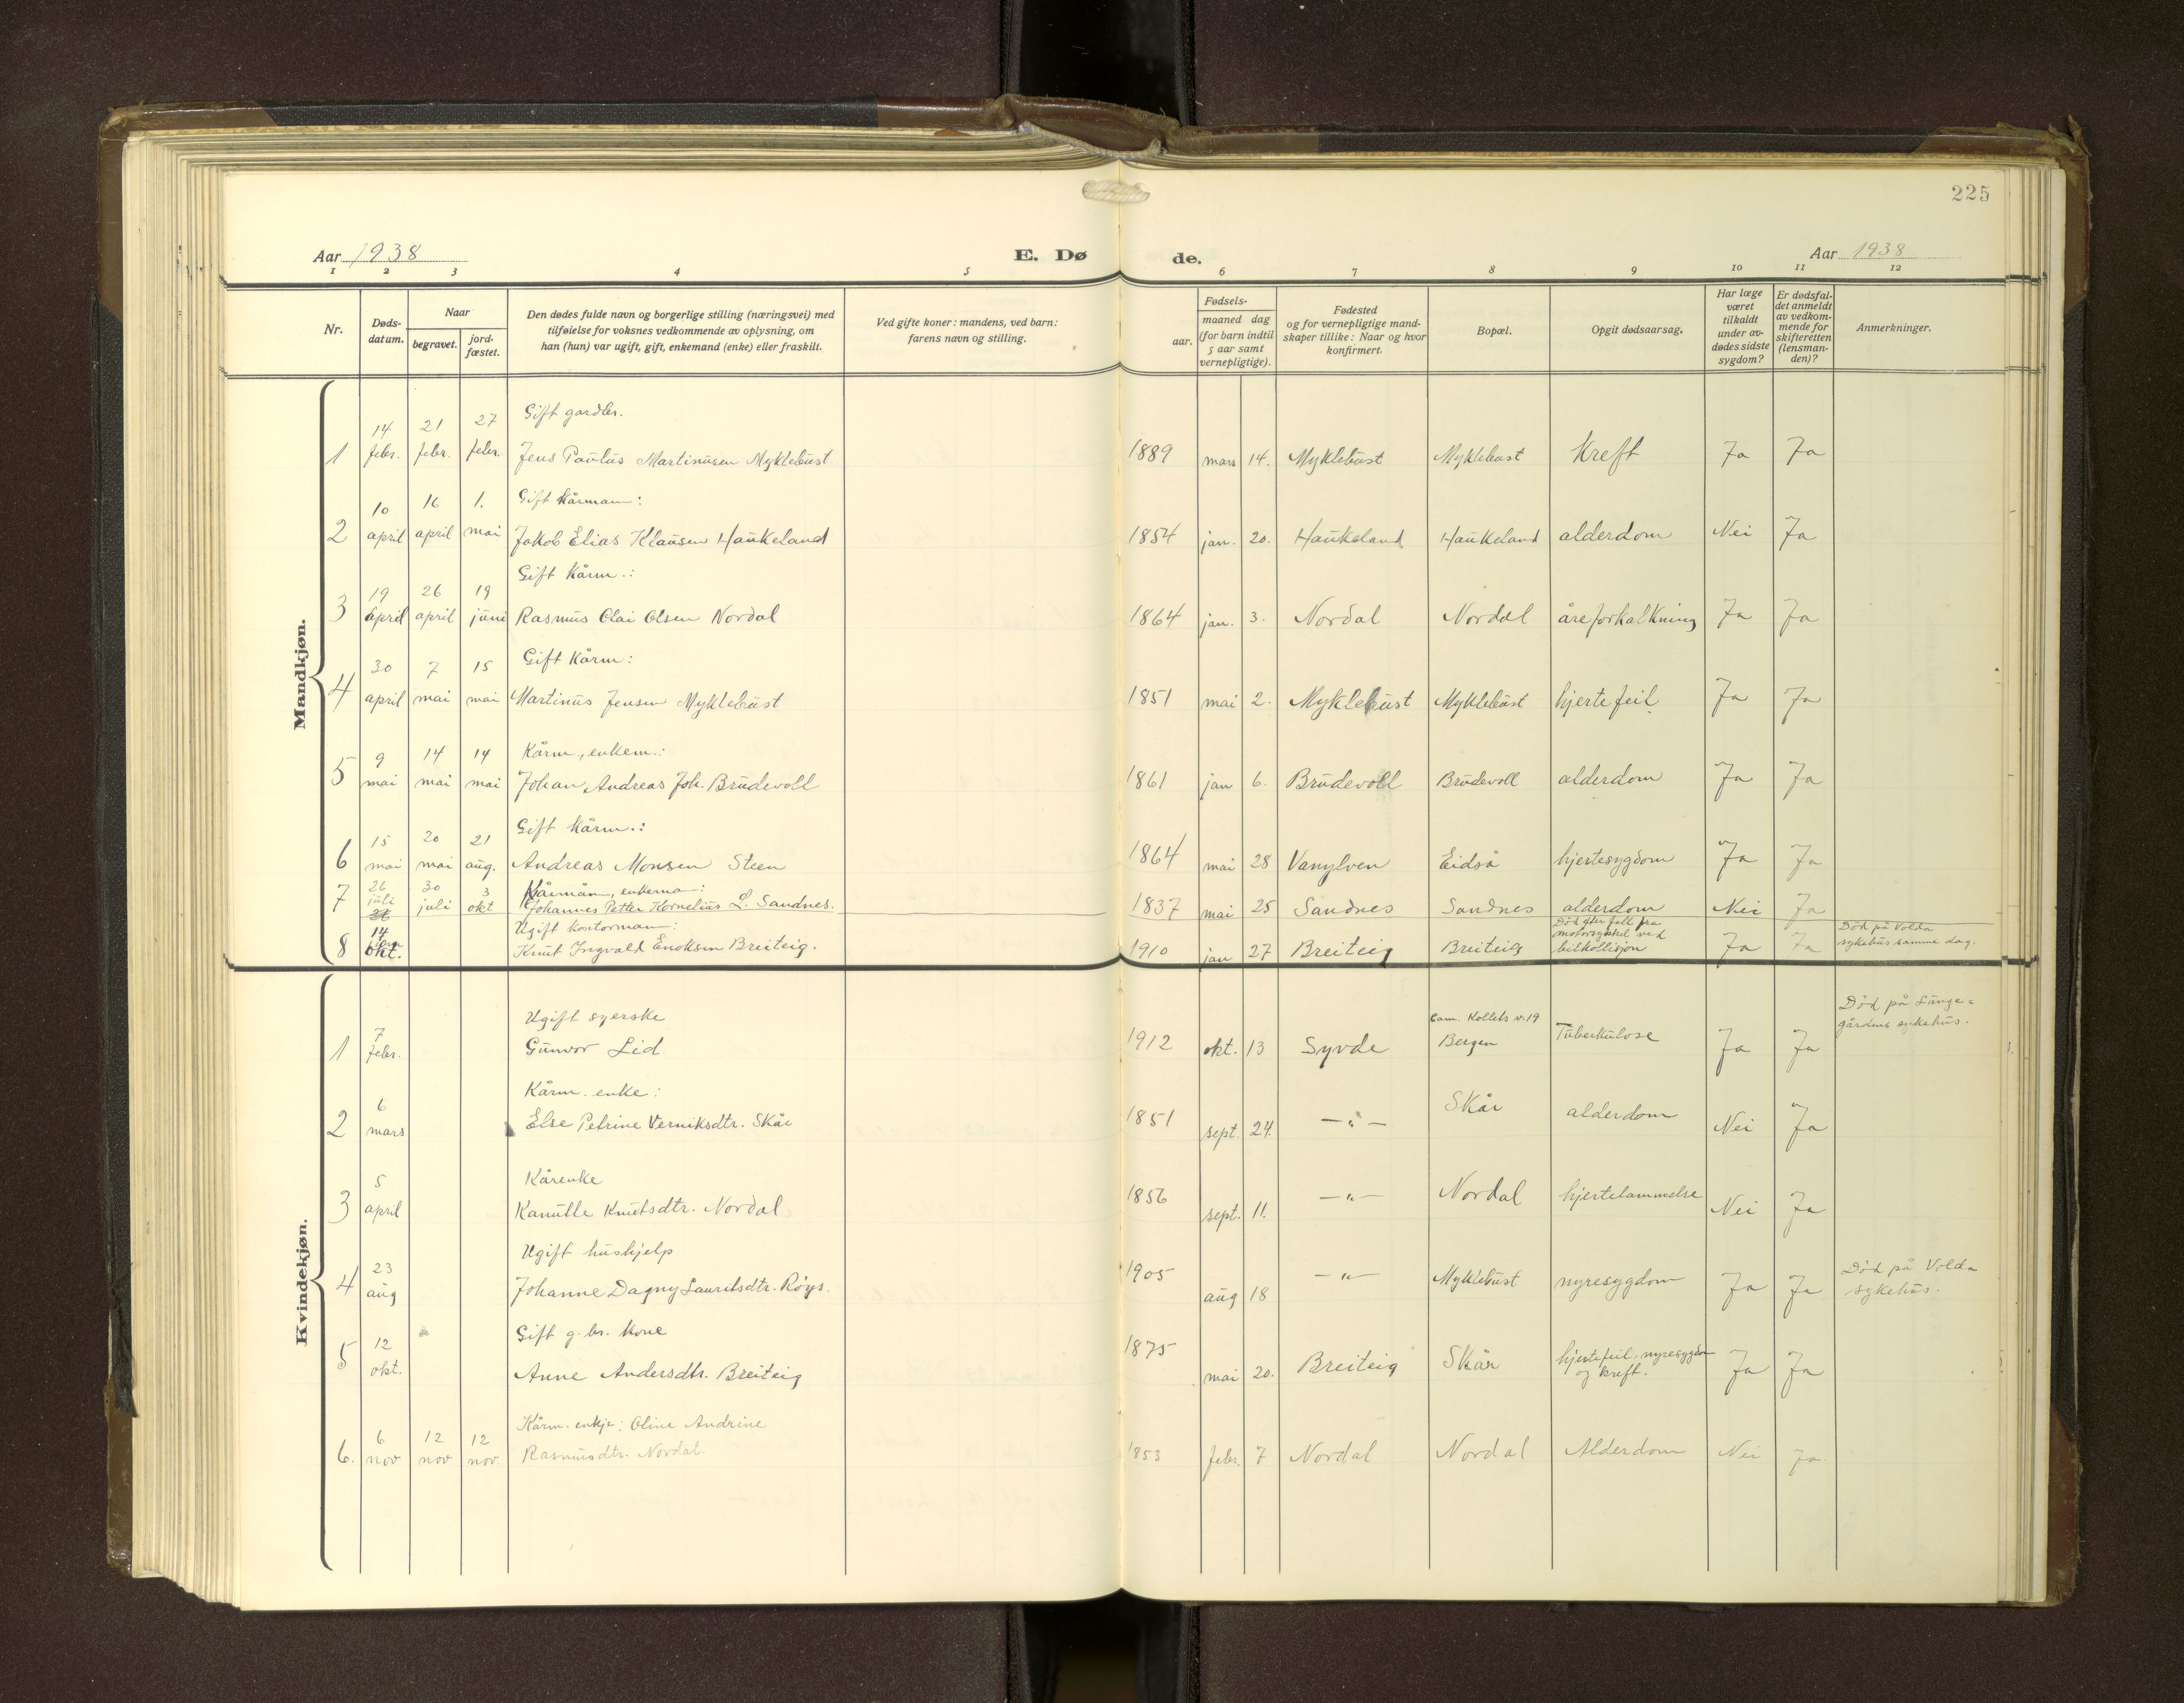 225
Aar 1938
E. Dø de.
Aar 1938
1 2 3 4 5 6 7 8 9 10 11 12
Nr.
Døds-
datum.
Naar
begravet.
jord-
fæstet.
Den dødes fulde navn og borgerlige stilling (næringsvei) med
tilføielse for voksnes vedkommende av oplysning, om
han (hun) var ugift, gift, enkemand (enke) eller fraskilt.
Ved gifte koner: mandens, ved barn:
farens navn og stilling.
Fødsels-
aar.
maaned dag
(for barn indtil
5 aar samt
vernepligtige).
Fødested
og for vernepligtige mand-
skaper tillike: Naar og hvor
konfirmert.
Bopæl.
Opgit dødsaarsag.
Har læge
været
tilkaldt
under av-
dødes sidste
sygdom?
Er dødsfal-
det anmeldt
av vedkom-
mende for
skifteretten
(lensman-
den)?
Anmerkninger.
Mandkjøn.
14 21 27 Gift gardbr.
1 febr. febr. febr. Jens Paulus Martinusen Myklebust 1889 mars 14. Myklebust Myklebust Kreft Ja Ja
10 16 1. Gift kårmann:
2 april april mai Jakob Elias Klausen Haukeland 1854 jan. 20. Haukeland Haukeland alderdom Nei Ja
19 26 19 Gift Kårm.:
3 april april juni Rasmus Olai Olsen Nordal 1864 jan. 3. Nordal Nordal åreforkalkning Ja Ja
30 7 15 Gift Kårm:
4 april mai mai Martinus Jensen Myklebust 1851 mai 2. Myklebust Myklebust hjertefeil Ja Ja
9 14 14 Kårm., enkem.:
5 mai mai mai Johan Andreas Joh. Brudevoll 1861 jan 6. Brudevoll Brudevoll alderdom Ja Ja
15 20 21 Gift Kårm.:
6 mai mai aug. Andreas Monsen Steen 1864 mai 28 Vanylven Eidså hjertesygdom Ja Ja
26 30 3 Kårmån, enkema:
7 juli juli okt Johannes Petter Kornelius L. Sandnes. 1837 mai 25 Sandnes Sandnes alderdom Nei Ja
14 Ugift kontorman: Død efter fall fra Død på Volda
motorsykkel ved sykehus samme dag.
8 okt. Knut Ingvald Enoksen Breiteig. 1910 jan 27 Breiteig Breiteig bilkollisjon Ja Ja
Kvindekjøn.
7 Ugift syerske Cam. Kolletts v. 19 Død på Lunge=
gårdens sykehus.
1 febr. Gunvor Lid 1912 okt. 13 Syvde Bergen Tuberkulose Ja Ja
6 Kårm. enke:
2 mars Else Petrine Verniksdtr. Skår 1851 sept. 24. —"— Skår alderdom Nei Ja
5 Kårenke
3 april Kanutte Knutsdtr. Nordal 1856 sept. 11. —"— Nordal hjertelammelse Nei Ja
23 Ugift hushjelp
4 aug Johanne Dagny Lauritsdtr. Röys. 1905 aug 18 —"— Myklebust nyresygdom Ja Ja Død på Volda
sykehus.
12 Gift g.br. kone
5 okt. Anne Andersdtr. Breiteig 1875 mai 20. Breiteig Skår hjertefeil, nyresygdom
og kreft. Ja Ja
6 12 12 Kårm. enkje: Oline Andrine
6. nov nov nov. Rasmusdtr. Nordal. 1853 febr. 7 Nordal Nordal Alderdom Nei Ja